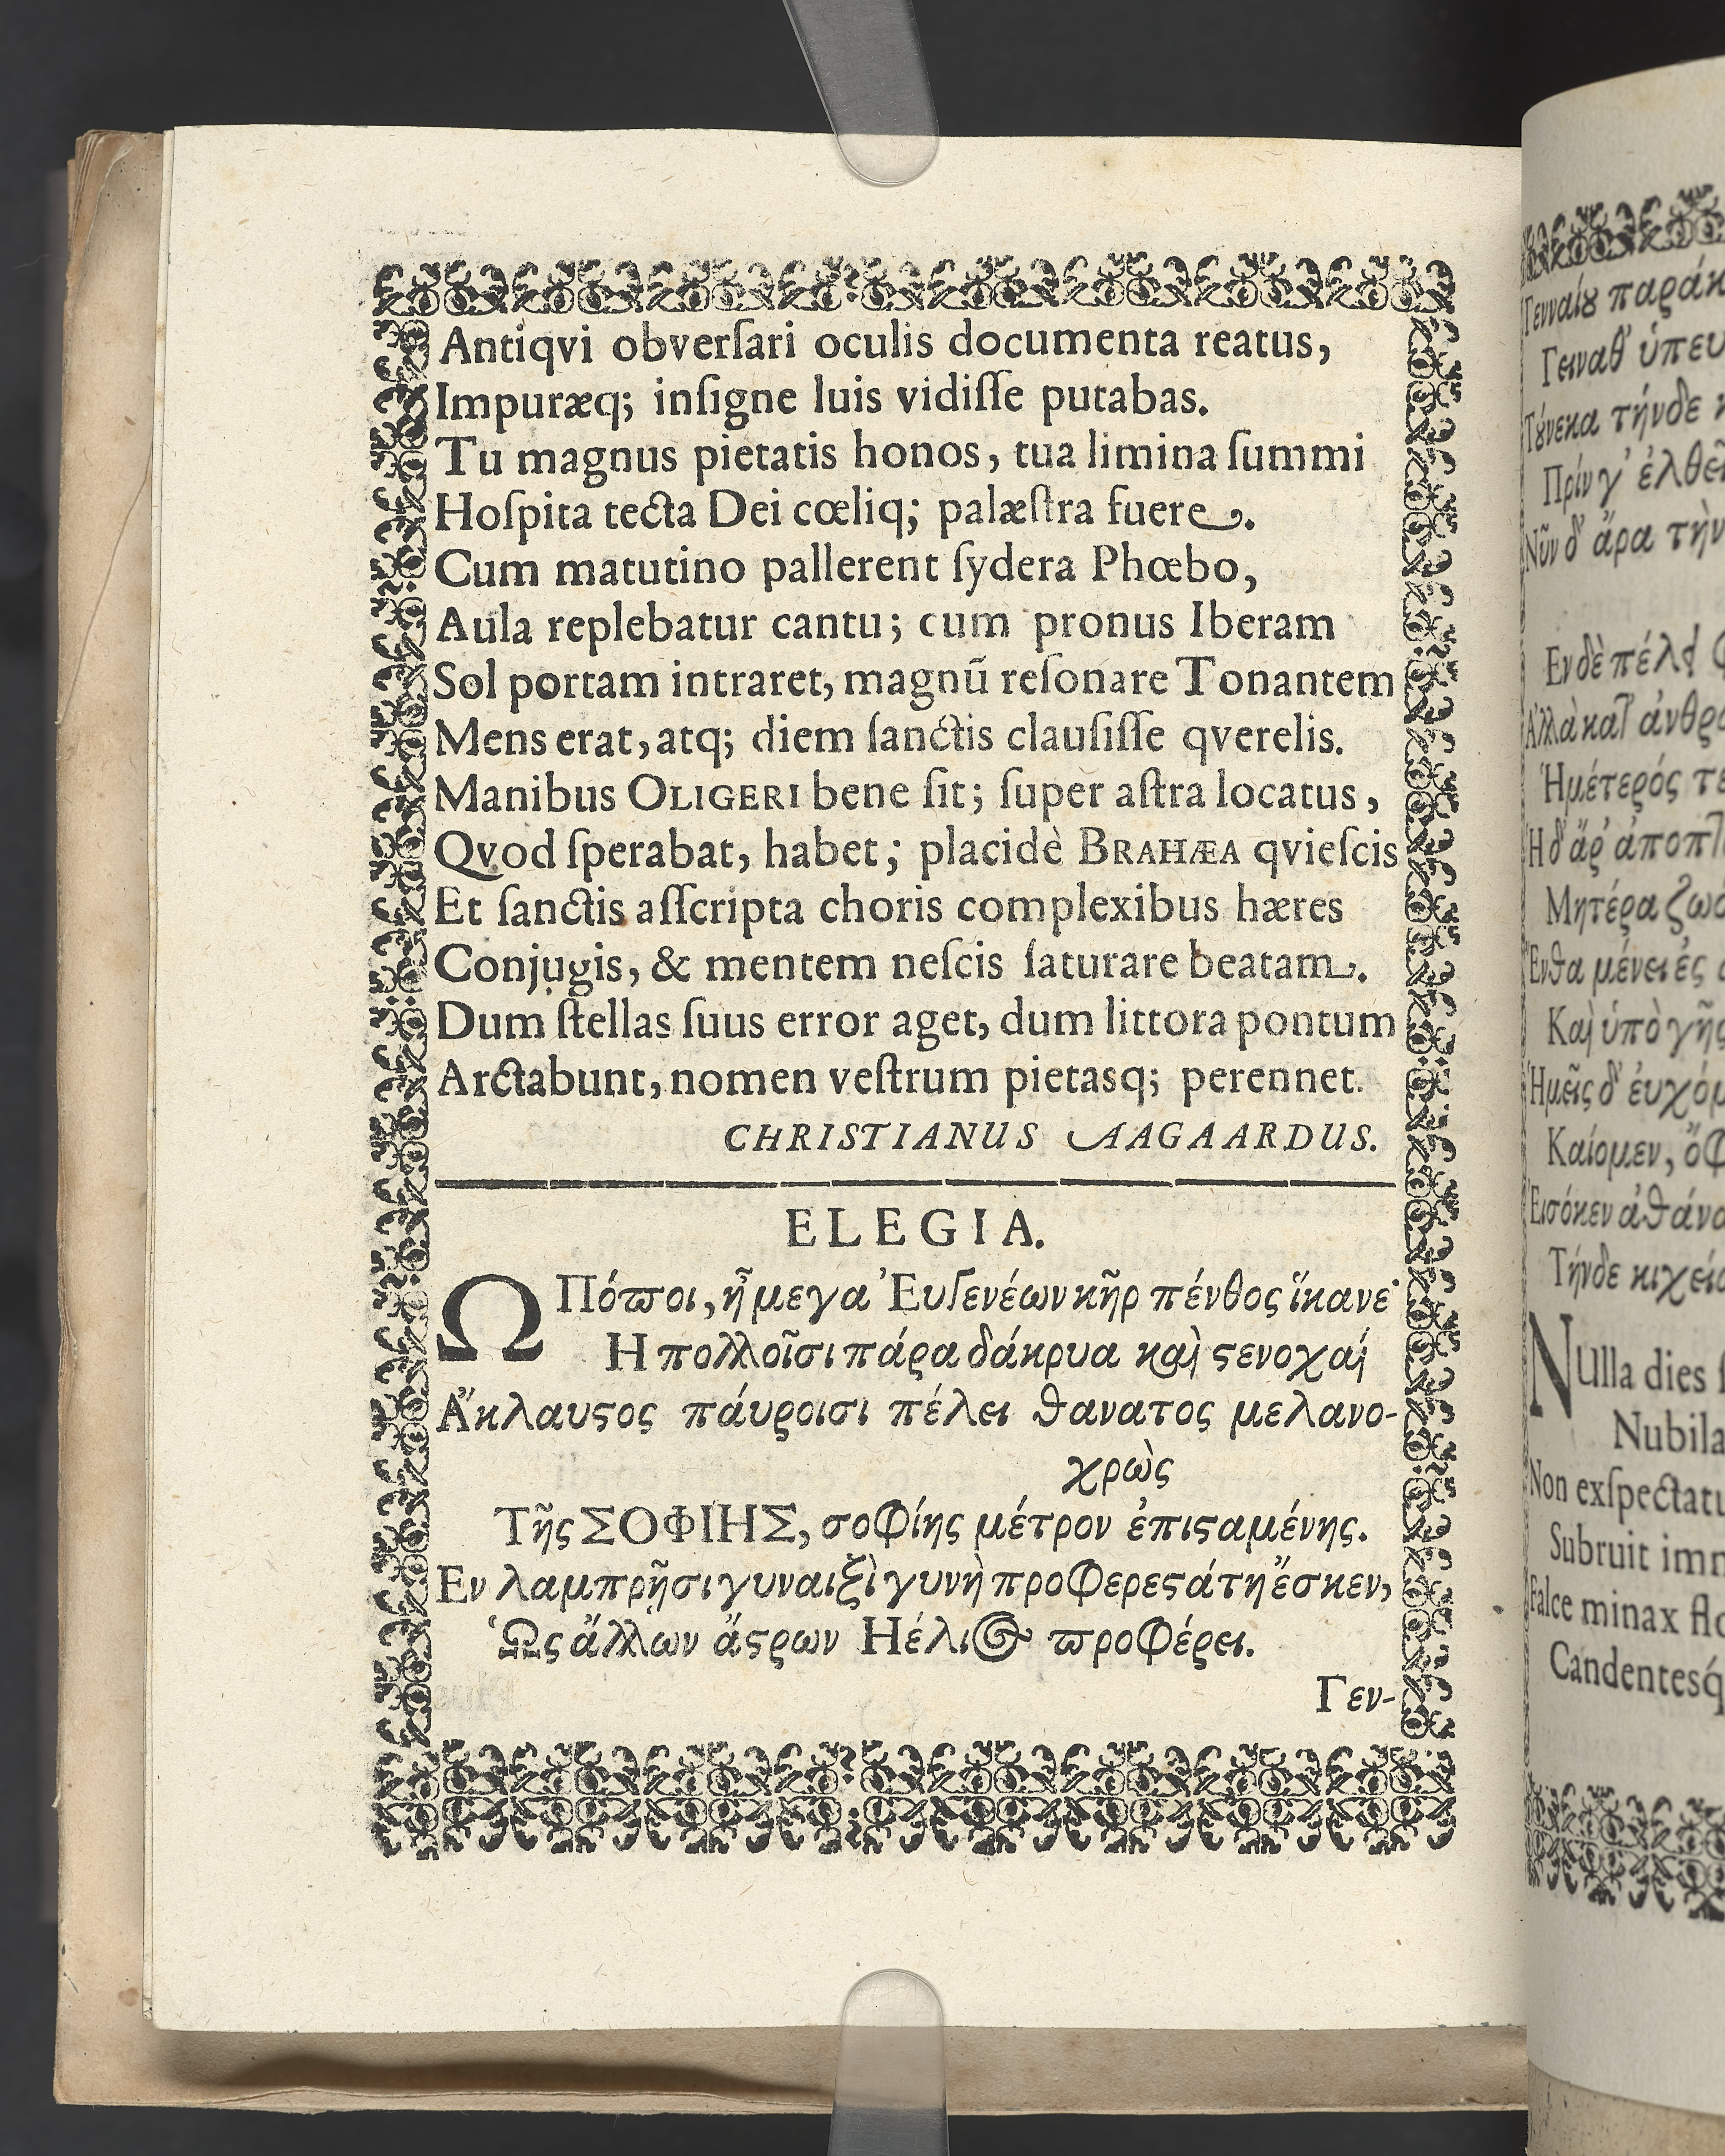 Antiqvi obverſari oculis documenta reatus,
Impuræq; inſigne luis vidiſſe putabas.
Tu magnus pietatis honos, tua limina ſummi
Hoſpita tecta Dei cœliq; palæſtra fuere.
Cum matutino pallerent ſydera Phœbo,
Aula replebatur cantu; cum pronus Iberam
Sol portam intraret, magnũ reſonare Tonantem
Mens erat, atq; diem ſanctis clauſiſſe qverelis.
Manibus OLIGERI bene ſit; ſuper aſtra locatus,
Qvod ſperabat, habet; placidè BRAHÆA qvieſcis
Et ſanctis aſſcripta choris complexibus hæres
Conjugis, & mentem neſcis ſaturare beatam.
Dum ſtellas ſuus error aget, dum littora pontum
Arctabunt, nomen veſtrum pietasq; perennet.
CHRISTIANUS AAGAARDUS.
ELEGIA.
Ω Πόϖοι, ἦ μεγα Ἐυγενέων κῆρ πένθος ἵκανε·
Η πολλοῖσι πάρα δάκρυα καὶ ϛενοχαί
Ἄκλαυϛος πάυροισι πέλει θανατος μελανο-
χρὼς
Τῆς ΣΟΦΙΗΣ, σοφίης μέτρον ἐπιϛαμένης.
Εν λαμπρῇσι γυναιξὶ γυνὴ προφερεϛάτη ἔσκεν,
Ὡς ἄλλων ἄϛρων Ηέλιος ϖροφέρει.
Γεν-
Γενναίȣ
Γειναθ'
Τȣ́νεκα τήνδε
Πρίν γ' ἐλθεῖ
Νῦν δ' ἄρα τὴν
Εν δὲ
Ἡμέτερός τε
Μητέρα
Ἔνθα μένει ἐς
Καὶ ὑπὸ γῆς
Ἡμεῖς δ'
Καίομεν,
Τήνδε
NUlla dies
Nubila
Non exſpectatu
Subruit imm
Falce minax flo
Candentesq́